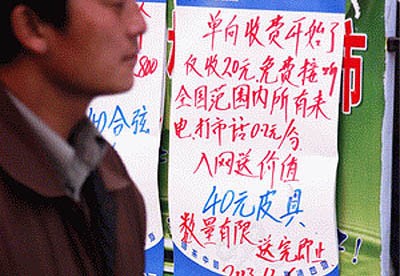 单向收费开始了
仅收20元.免费接听
全国范围内所有来
电.打市话0.2元/分.
入网送价值
40元皮具
数量有限 送完即止
800
40合弦
市